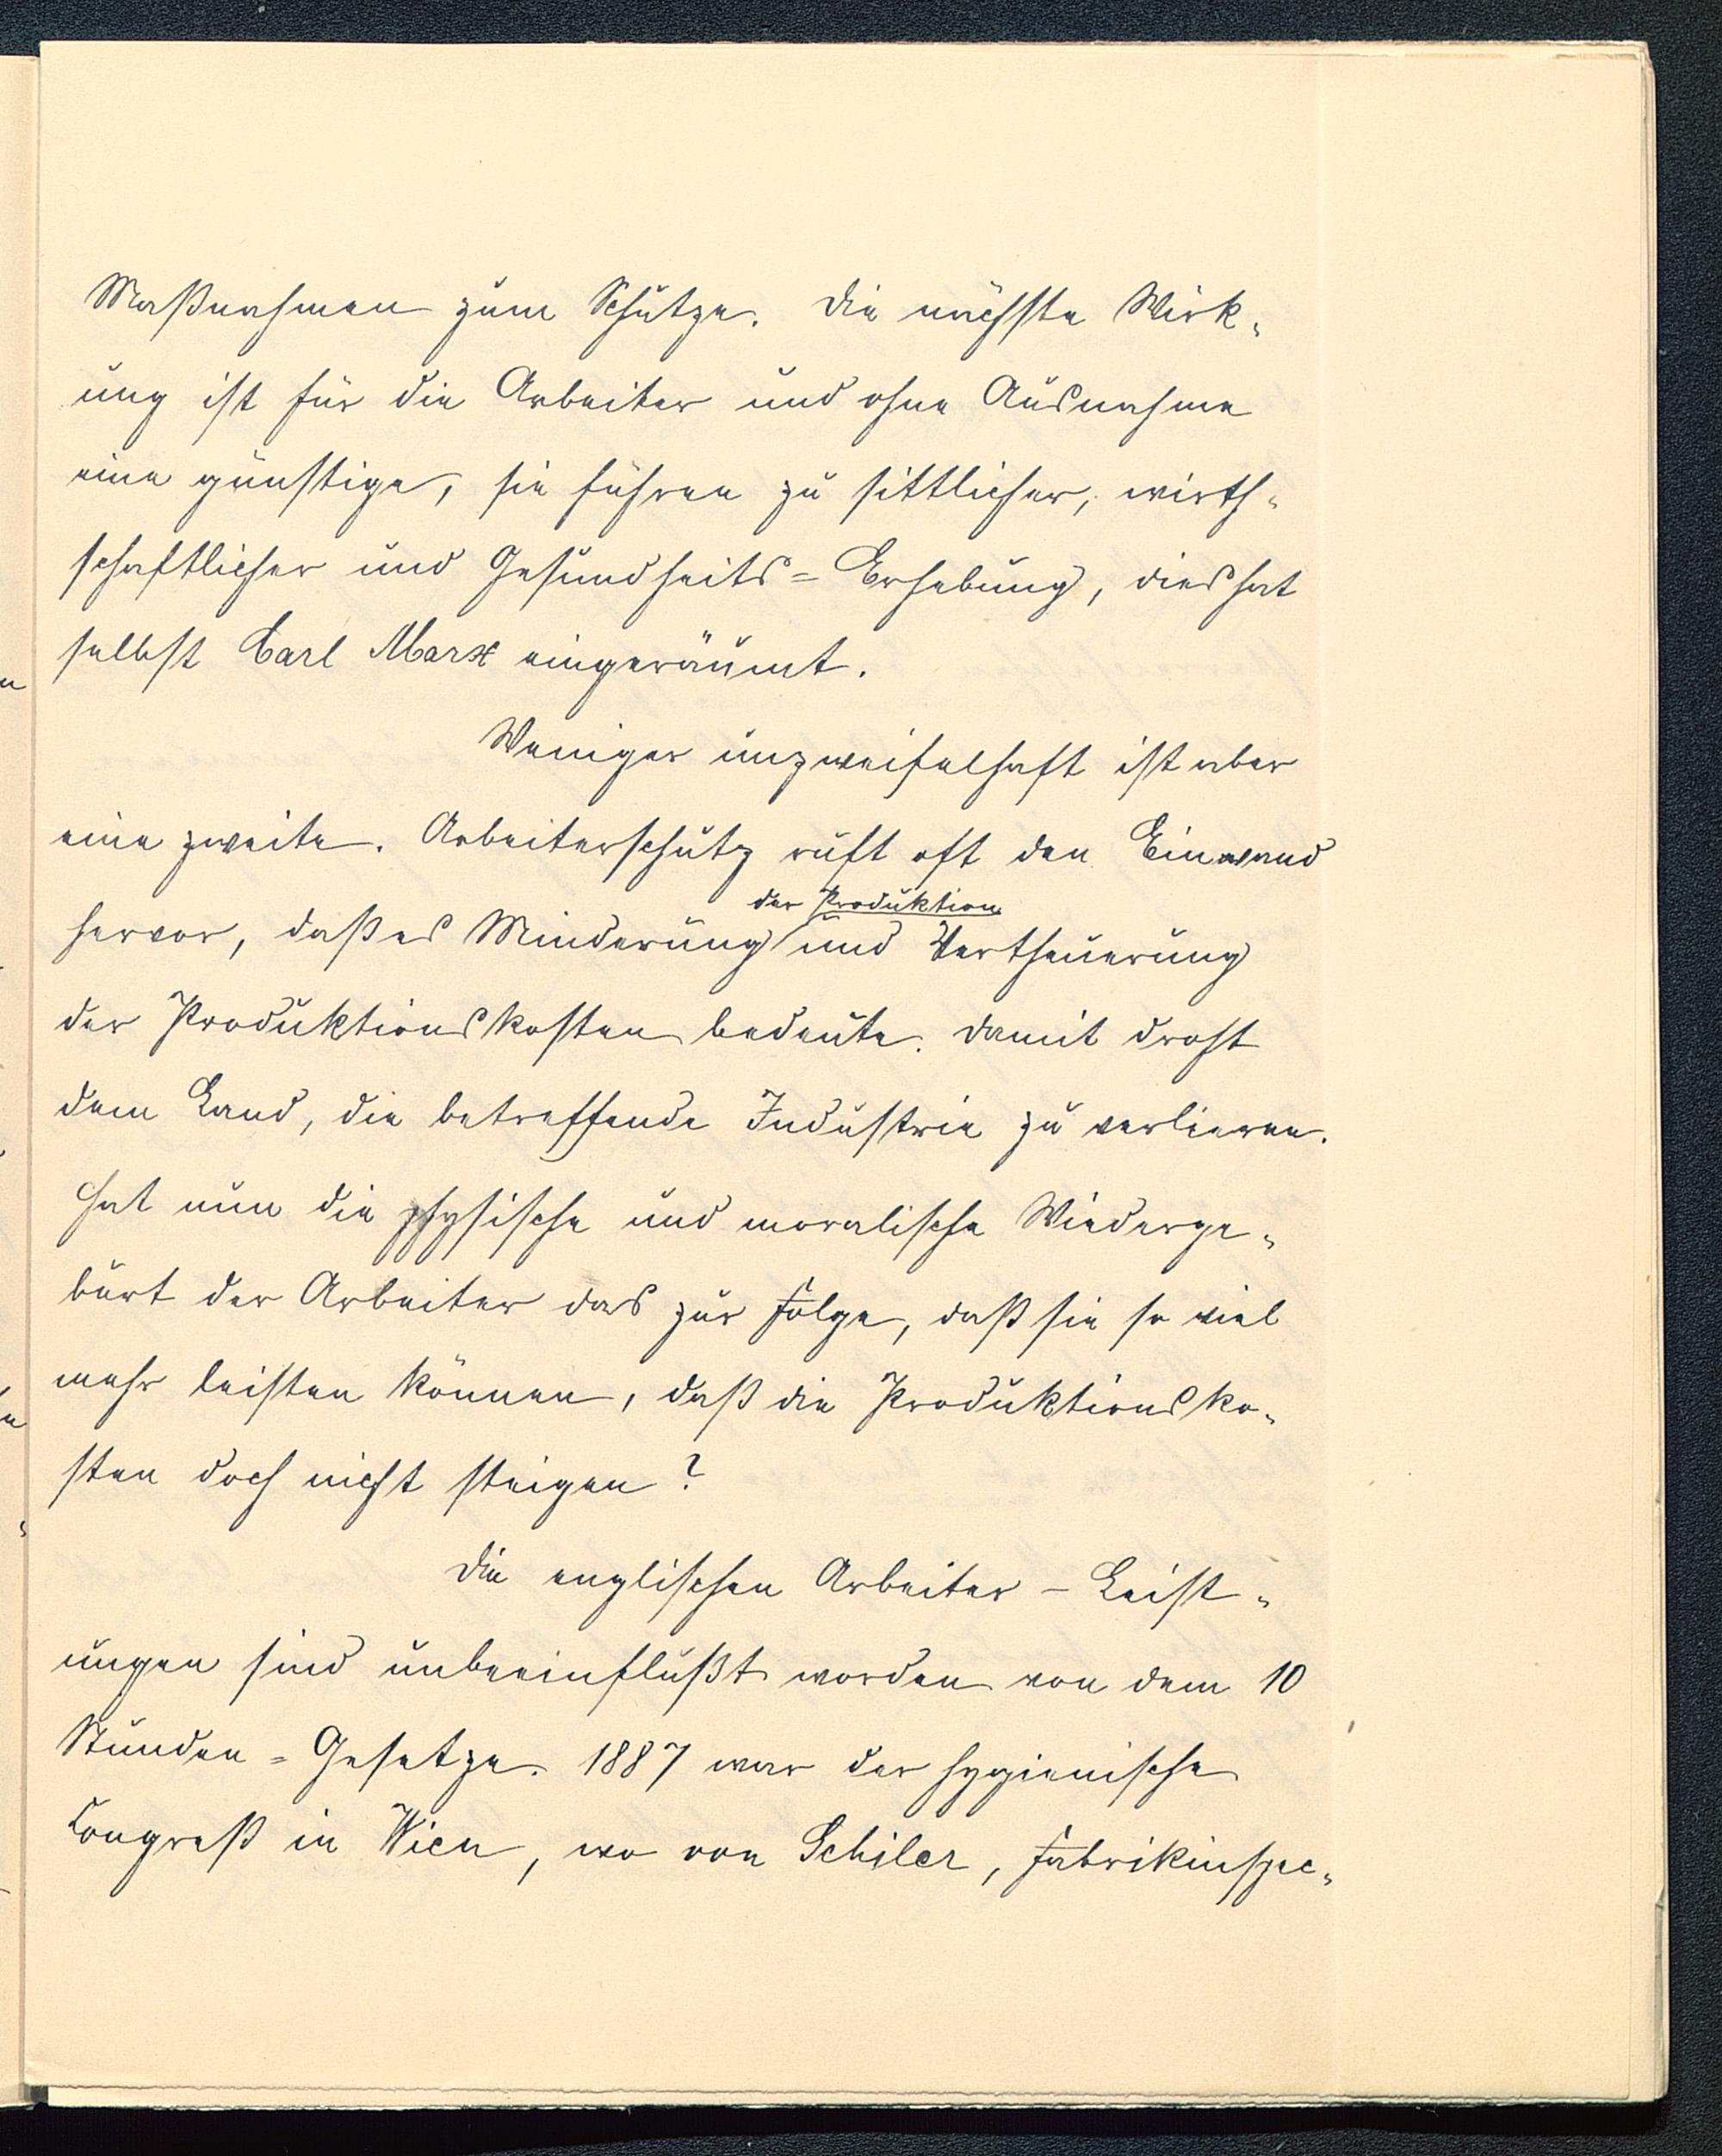 Maßnahmen zum Schutze. Die nächste Wirk-
ung ist für die Arbeiter und ohne Ausnahme
eine günstige, sie führen zu sittlicher, wirth-
schaftlicher und Gesundheits=Erhebung, dies hat
selbst Carl Marx eingeräumt.
Weniger unzweifelhaft ist aber
eine zweite. Arbeiterschutz ruft oft den Einwand
der Produktion
hervor, daß es Minderung und Vertheuerung
der Produktionskosten bedeute. Damit droht
dem Land, die betreffende Industrie zu verlieren.
Hat nun die physische und moralische Wiederge-
burt der Arbeiter das zur Folge, daß sie so viel
mehr leisten können, daß die Produktionsko-
sten doch nicht steigen?
Die englischen Arbeiter-Leist-
ungen sind unbeeinflußt worden von dem 10
Stunden=Gesetze. 1887 war der hygienische
Congreß in Wien, wo von Schiler, Fabrikinspec-